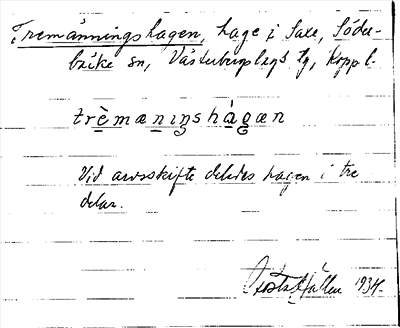 Tremänningshagen, hage i Saxe, Söder-
bärke sn, Västerbergslags tg, Kopp l.
trèmæningshágæn
Vid arvsskifte delades hagen i tre
delar.
1934.